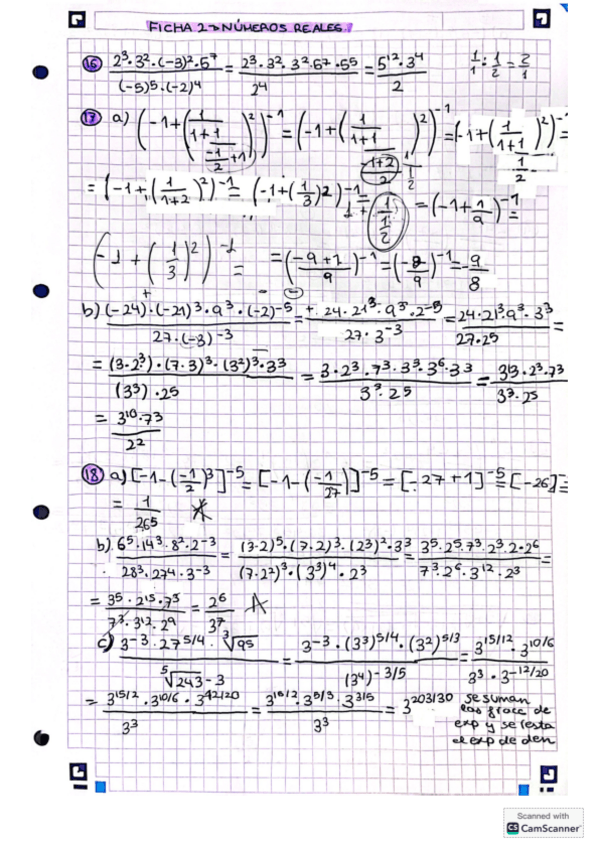 FICHA 2 → NÚMEROS REALES.
16 (2³·3²·(-3)²·5⁷)/((-5)⁵·(-2)⁴) = (2³·3²·3²·5⁷·5⁵)/2⁴ = (5¹²·3⁴)/2 1/1 : 1/2 = 2/1
17 a) (-1+(1/(1+1/(-1/2+1)))²)⁻¹ = (-1+(1/(1+1/((-1+2)/2)))²)⁻¹ = (-1+(1/(1+1/(1/2)))²)⁻¹ =
= (-1+(1/(1+2))²)⁻¹ = (-1+(1/3)²)⁻¹ = 1/(1/2) = (-1+1/9)⁻¹ =
(-1+(1/3)²)⁻¹ = = ((-9+1)/9)⁻¹ = (-8/9)⁻¹ = -9/8
b) ((-24)·(-21)³·9³·(-2)⁻⁵)/(27·(-3)⁻³) = (+·24·21³·9³·2⁻⁵)/(27·3⁻³) = (24·21³·9³·3³)/(27·2⁵) =
= ((3·2³)·(7·3)³·(3²)³·3³)/((3³)·2⁵) = (3·2³·7³·3³·3⁶·3³)/(3³·2⁵) = (3¹³·2³·7³)/(3³·2⁵)
= (3¹⁰·7³)/2²
18 a) [-1-(-1/2)³]⁻⁵ = [-1-(-1/27)]⁻⁵ = [-27+1]⁻⁵ = [-26]⁻ =
= 1/26⁵
b) (6⁵·14³·8²·2⁻³)/(28³·27⁴·3⁻³) = ((3·2)⁵·(7·2)³·(2³)²·3³)/((7·2²)³·(3³)⁴·2³) = (3⁵·2⁵·7³·2³·2·2⁶)/(7³·2⁶·3¹²·2³) =
= (3⁵·2¹⁵·7³)/(7³·3¹²·2⁹) = 2⁶/3⁷
c) (3⁻³·27^(5/4)·³√9⁵)/(⁵√243⁻³) = (3⁻³·(3³)^(5/4)·(3²)^(5/3))/((3⁴)^(-3/5)) = (3^(15/12)·3^(10/6))/(3³·3^(-12/20))
= (3^(15/2)·3^(10/6)·3^(42/20))/3³ = (3^(15/2)·3^(5/3)·3^(3/5))/3³ = 3^(203/30) se suman
las fracc de
exp y se resta
el exp de den
Scanned with
CS CamScanner